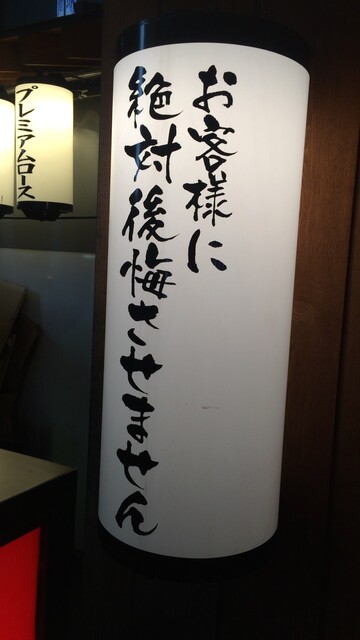 お客様に
絶対後悔させません
プレミアムロース